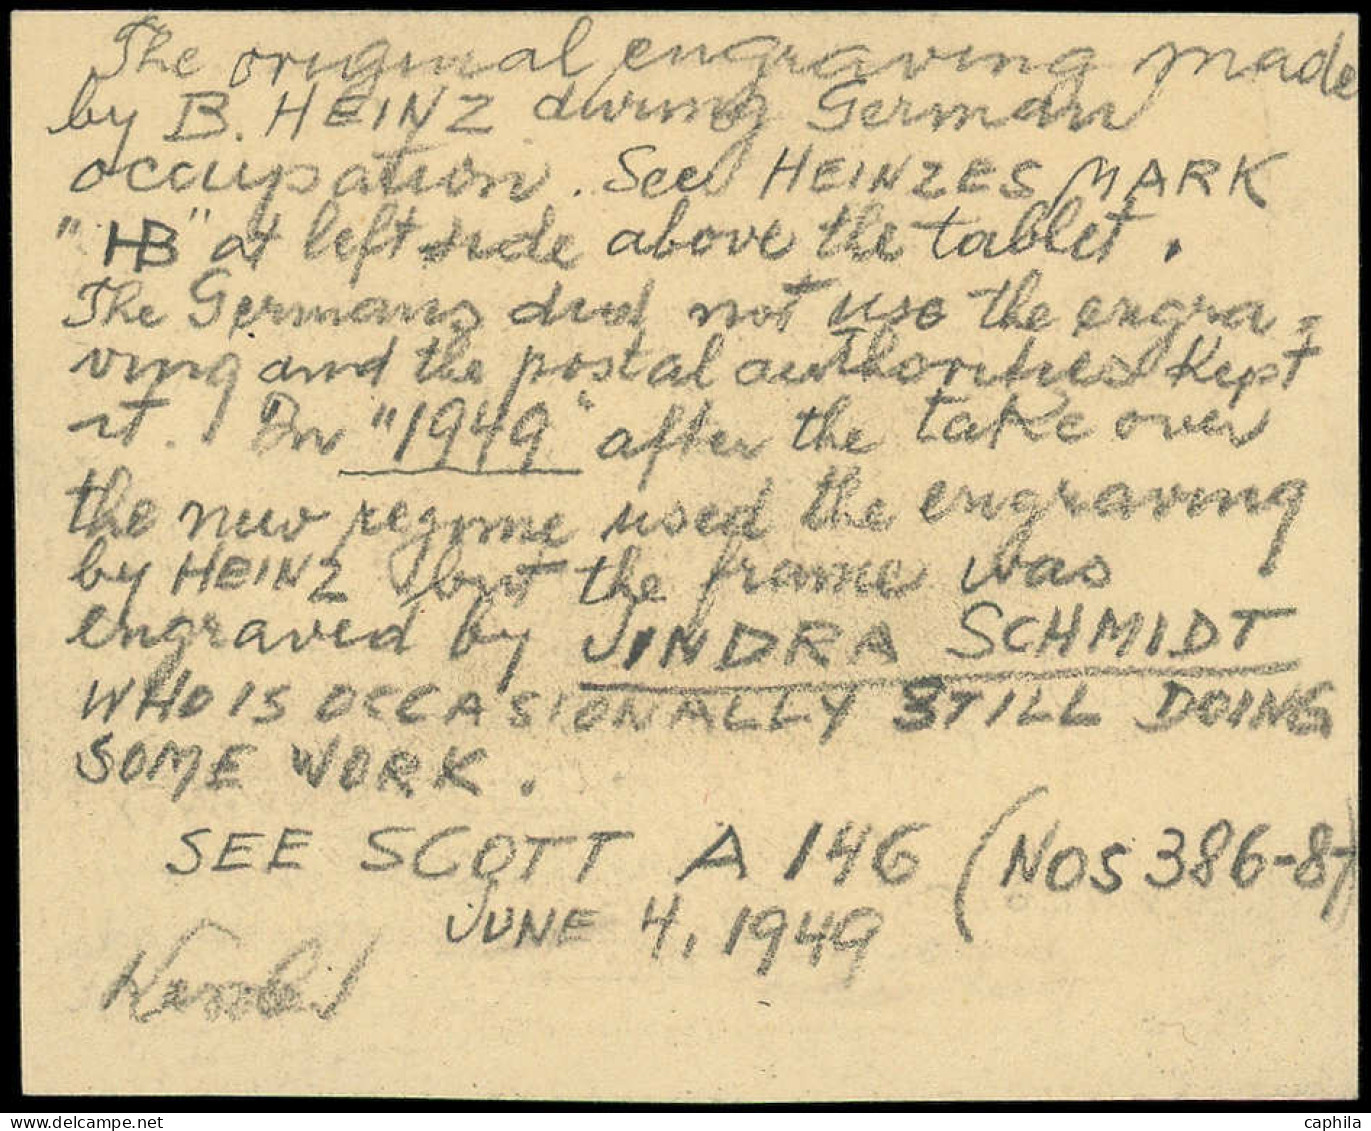 The original engraving made
by B. HEINZ during German
occupation. See HEINZES MARK
"HB" at left side above the tablet.
The Germans did not use the engra=
ving and the postal authorities kept
it. In "1949" after the take over
the new regime used the engraving
by HEINZ but the frame was
engraved by JINDRA SCHMIDT
WHO IS OCCASIONALLY STILL DOING
SOME WORK.
SEE SCOTT A 146 (NOS 386-87)
JUNE 4, 1949
caphila